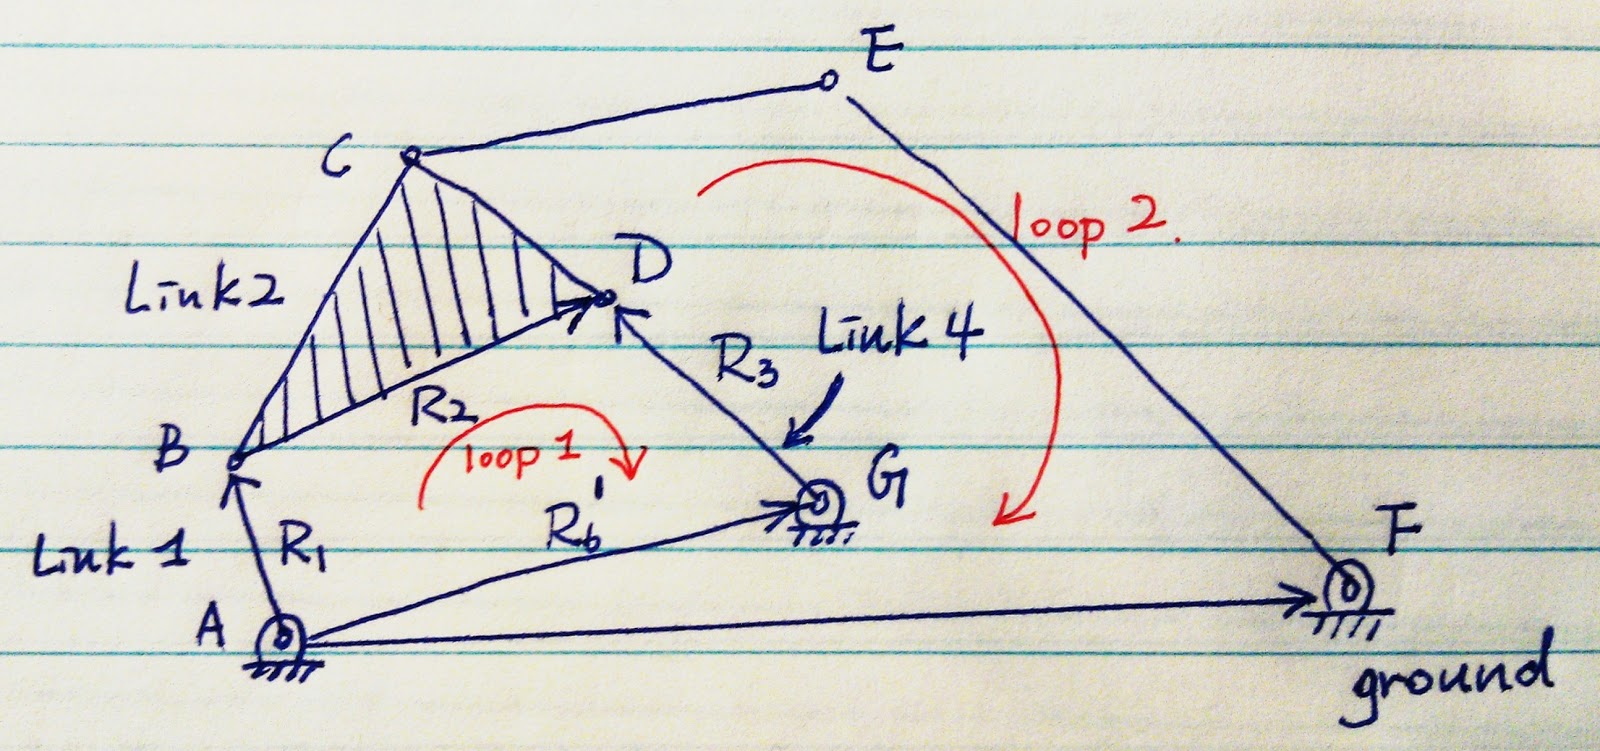 E
C
loop 2.
D
Link 2
Link 4
R3
R2
B
loop 1
G
R6'
F
Link 1
R1
A
ground